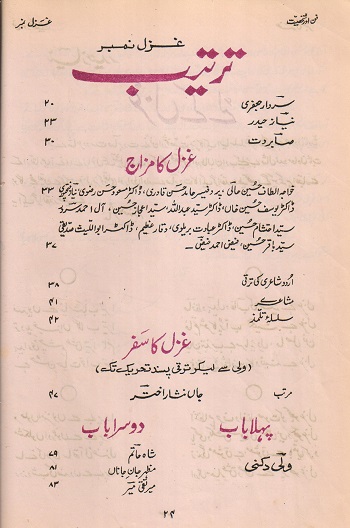 فن اور شخصیت
غزل نمبر
غزل نمبر
ترتیب
سردار جعفری ۲۰
نیاز حیدر ۲۳
صابر دت ۳۰
غزل کا مزاج
خواجہ الطاف حسین حالی، پروفیسر حامد حسن قادری، ڈاکٹر مسعود حسن رضوی، نیاز فتحپوری ۳۳
ڈاکٹر یوسف حسین خاں، ڈاکٹر سید عبداللہ، سید اعجاز حسین، آل احمد سرور
سید احتشام حسین، ڈاکٹر عبادت بریلوی، وقار عظیم، ڈاکٹر ابواللیث صدیقی
سید باقر حسین، فیض احمد فیض ۳۷
اردو شاعری کی ترقی ۳۸
مشاعرے ۴۱
سلسلۂ تلمذ ۴۲
غزل کا سفر
(ولی سے لیکر ترقی پسند تحریک تک)
مرتب جاں نثار اختر ۴۷
پہلا باب
ولی دکنی
دوسرا باب
شاہ حاتم ۷۹
مظہر جان جاناں ۸۱
میر تقی میر ۸۳
۲۴